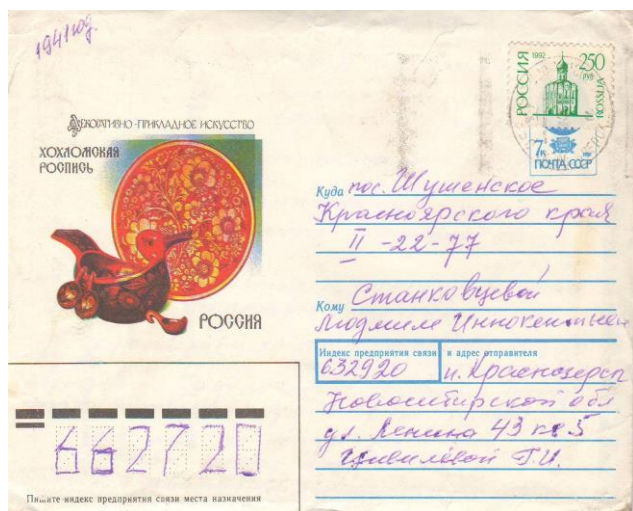 1941 год.
ДЕКОРАТИВНО-ПРИКЛАДНОЕ ИСКУССТВО
ХОХЛОМСКАЯ
РОСПИСЬ
РОССИЯ
РОССИЯ 1992 250
РУБ
ROSSIJA
7к
ПОЧТА СССР
Куда пос. Шушенское
Красноярского края
II-22-77
Кому Станковцевой
Людмиле Иннокентьевне
Индекс предприятия связи и адрес отправителя
632920 н. Краснозерск
Новосибирской обл
ул. Ленина 43 кв 5
Г.И.
662720
Пишите индекс предприятия связи места назначения